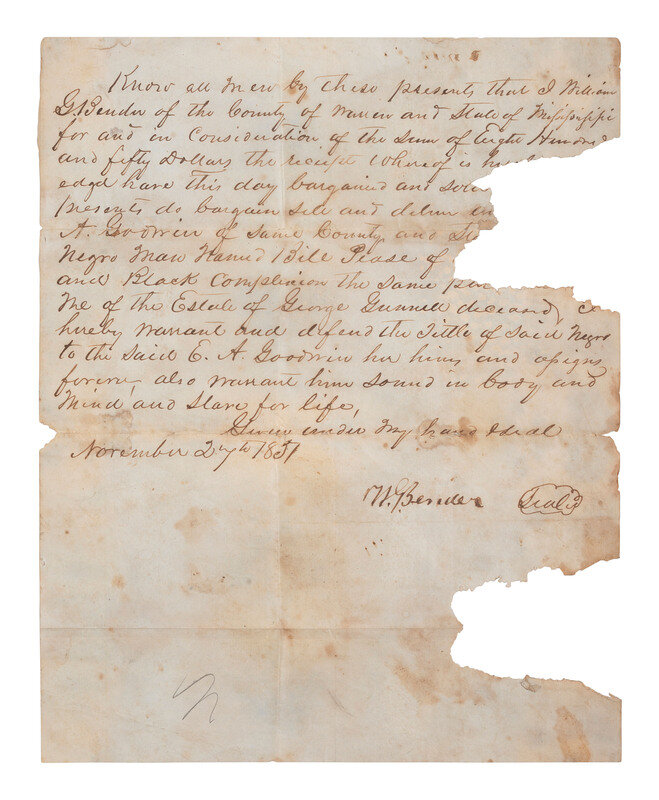 Know all men by these presents that I William
G. Bender of the County of Warren and State of Mississippi
for and in Consideration of the Sum of Eight Hundred
and fifty Dollars the receipt whereof is
edgd have this day bargained and
presents do bargain sell and deliver
A. Goodwin of same County and
Negro Man Named Bill Pease of
and Black Complexion the same
Me of the Estate of George Gunnell deceased,
hereby warrant and defend the Tittle of said Negro
to the said E. A. Goodwin her heirs and assigns
forever, also warrant him sound in body and
Mind, and Slave for life,
Given under My hand & Seal
November 27th 1851
W. G. Bender Seal